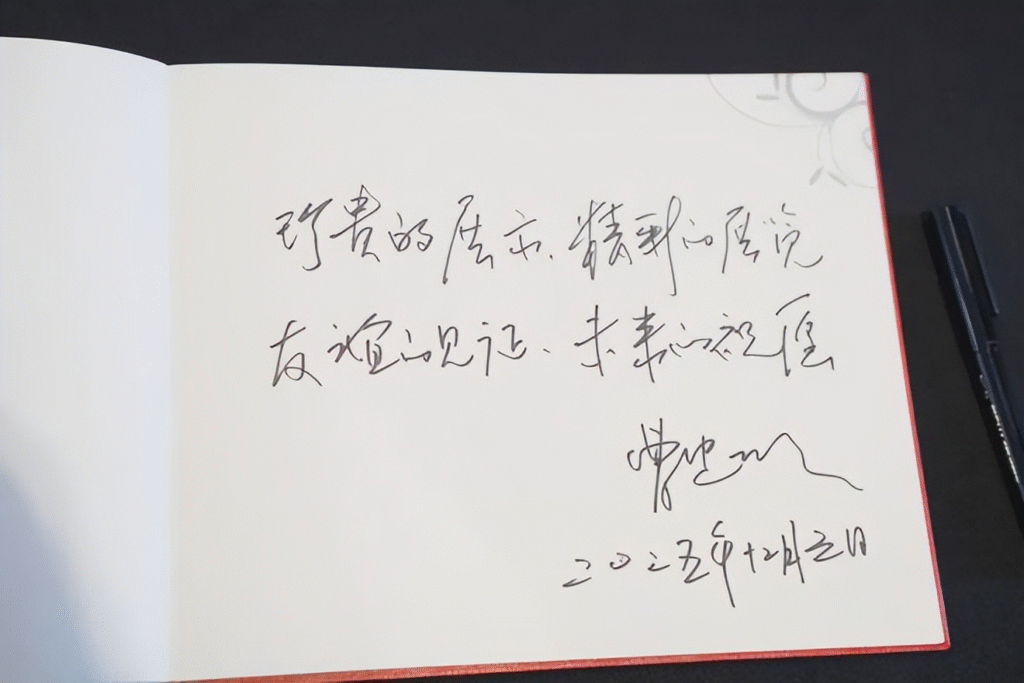 珍贵的展示、精彩的展览
友谊的见证、未来的祝愿
二〇二五年十二月三日